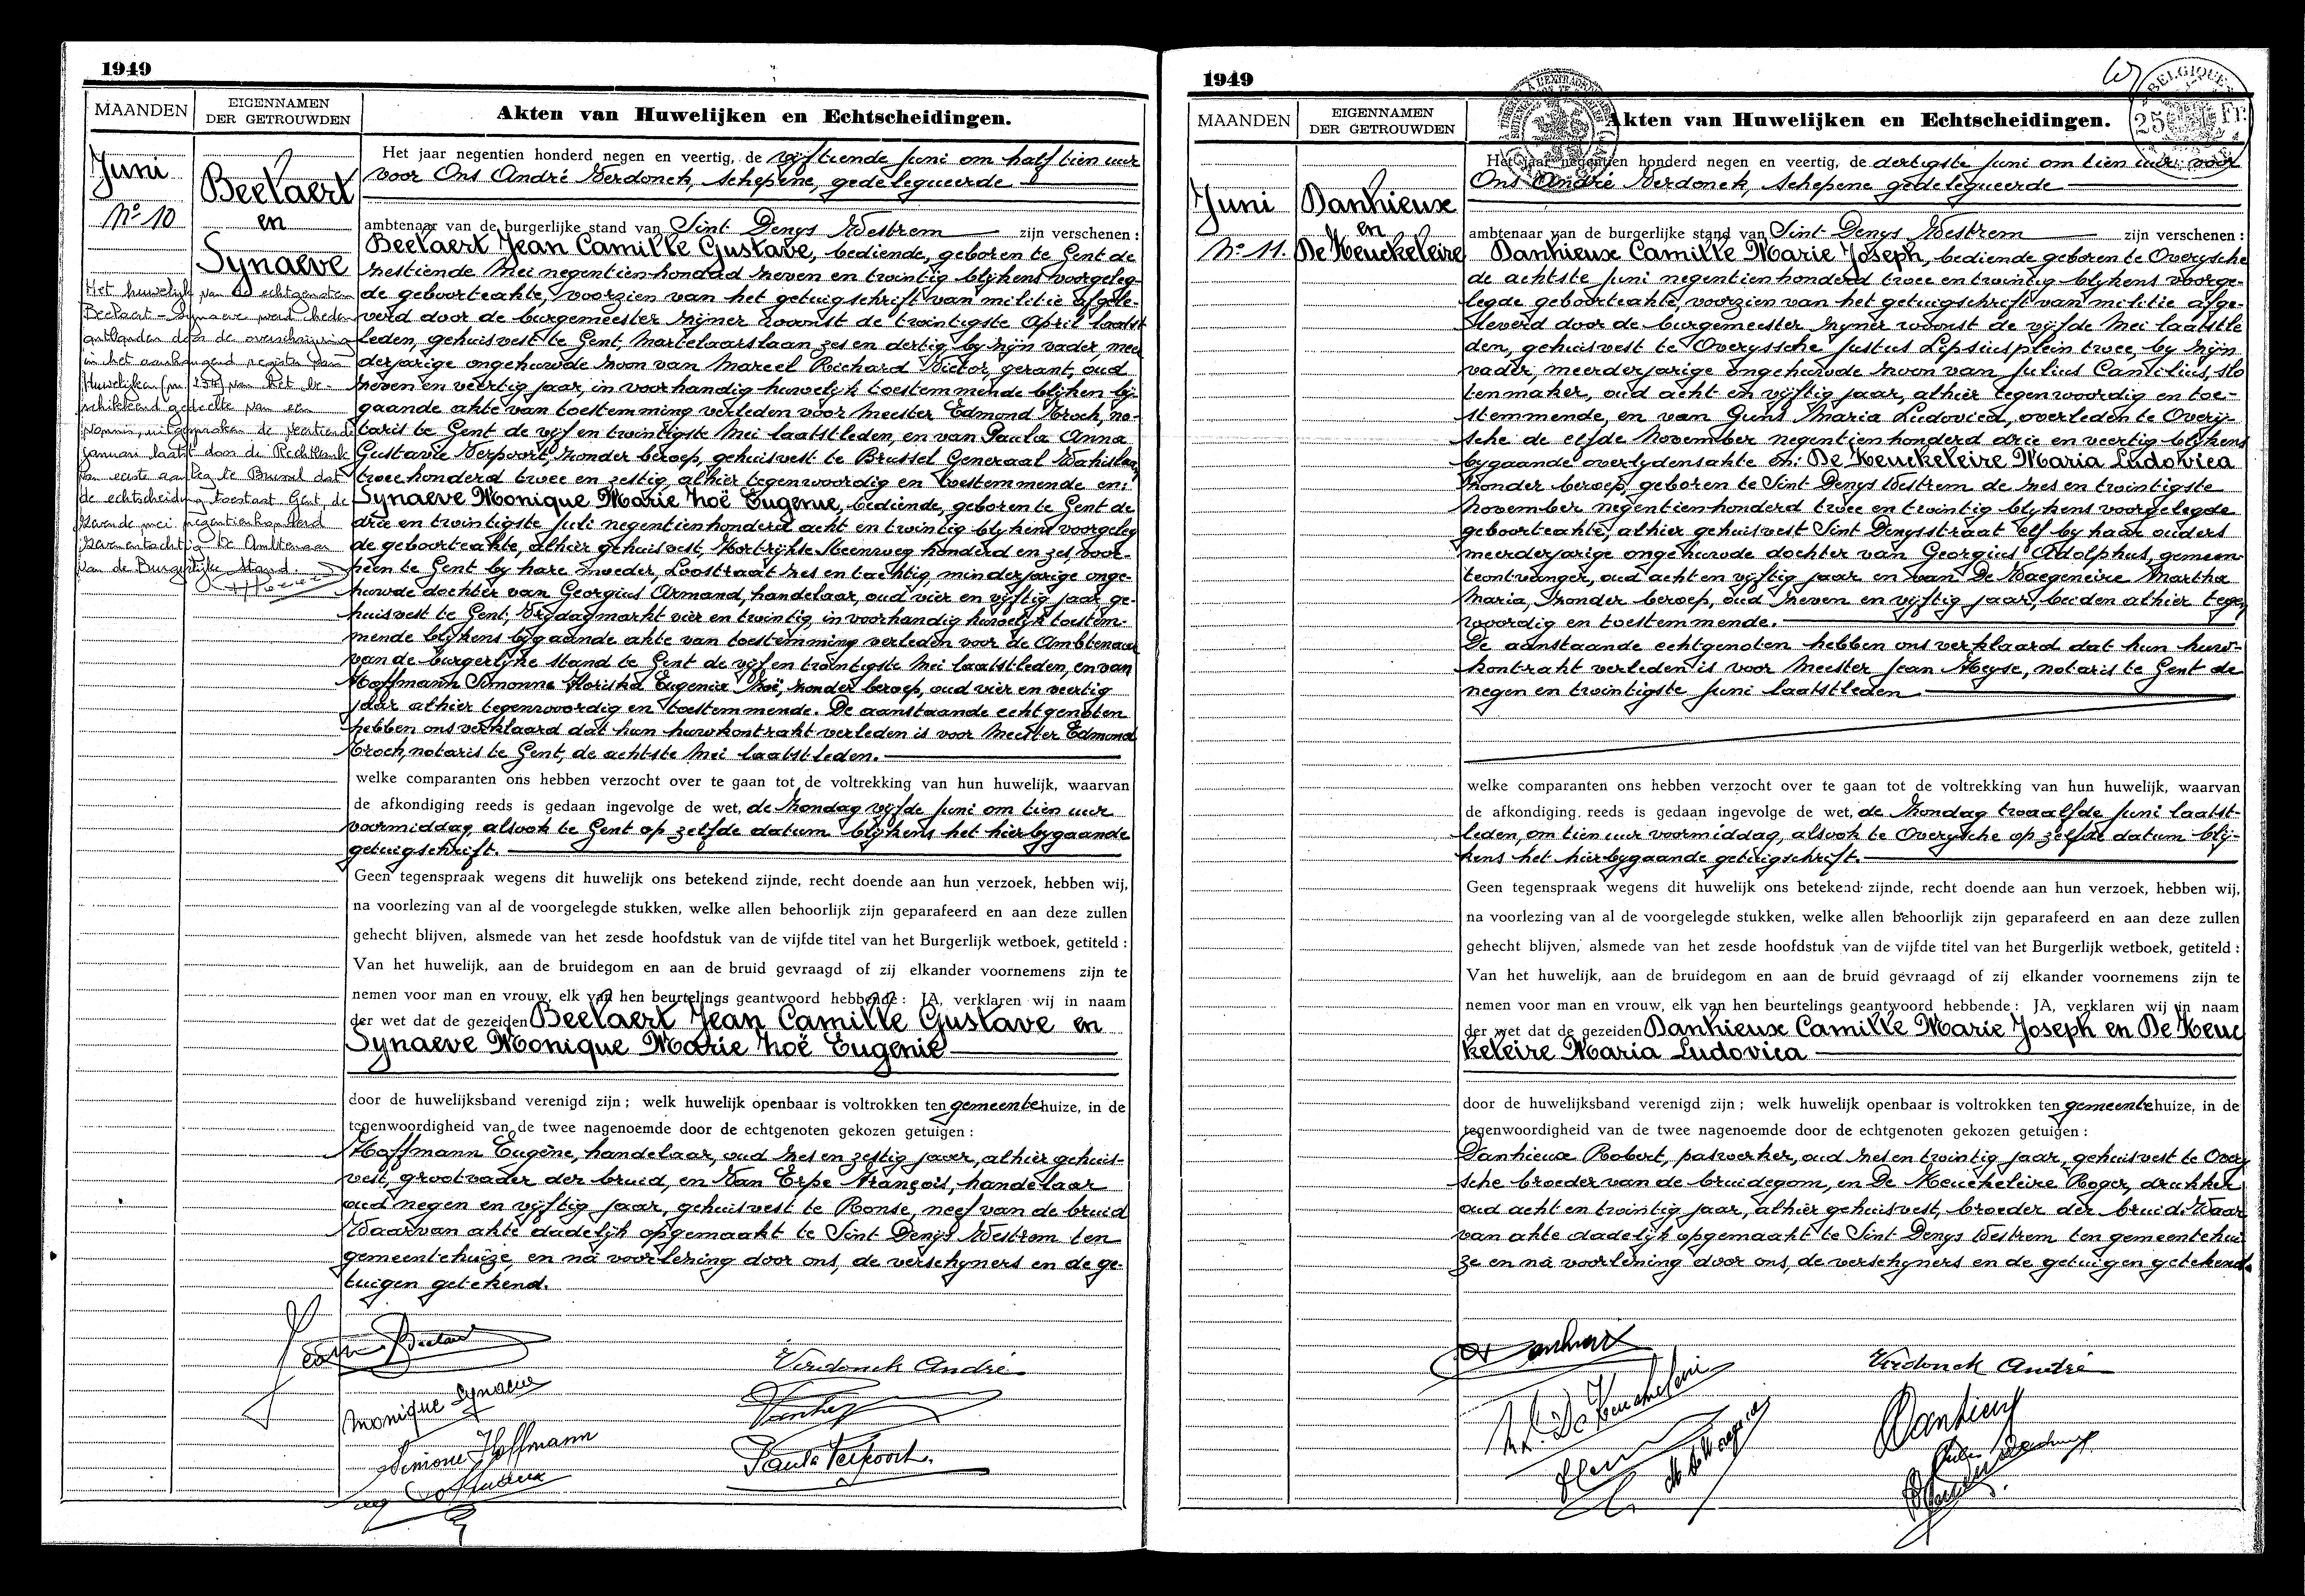 1949
MAANDEN
EIGENNAMEN
DER GETROUWDEN
Akten van Huwelijken en Echtscheidingen.
Juni
Nº 10
Beelaert
en
Synaeve
Het huwelijk van de echtgenoten
Beelaert - Synaeve werd heden
ontbonden door de overschrijving
in het aanhangend register van
Huwelijken van het be-
schikkend gedeelte van een
vonnis, uitgesproken de veertiende
januari laatst door de Rechtbank
van eerste aanleg te Brussel dat
de echtscheiding toestaat Gent, de
zevende mei negentienhonderd
zevenentachtig De Ambtenaar
van de Burgerlijke Stand.
Het jaar negentien honderd negen en veertig, de vijftiende Juni om half tien uur
voor Ons André Verdonck, schepene, gedelegueerde
ambtenaar van de burgerlijke stand van Sint Denijs Westrem zijn verschenen :
Beelaert Jean Camille Gustave, bediende, geboren te Gent de
zestiende Mei negentien honderd zeven en twintig blijkens voorgeleg-
de geboorteakte, voorzien van het getuigschrift van militie afgele-
verd door de burgemeester zijner woonst de twintigste April laatst
leden, gehuisvest te Gent, Martelaarslaan zes en dertig, by zijn vader, meer
derjarige ongehuwde zoon van Marcel Richard Victor, gerant, oud
zeven en veertig jaar, in voorhandig huwelijk toestemmende blijkens bij-
gaande akte van toestemming verleden voor Meester Edmond Kroch, no-
taris te Gent de vijf en twintigste Mei laatstleden, en van Paula Anna
Gustavie Verpoort, zonder beroep, gehuisvest te Brussel Generaal Wahislaan
twee honderd twee en zestig, alhier tegenwoordig en toestemmende en:
Synaeve Monique Marie Zoë Eugenie, bediende, geboren te Gent de
drie en twintigste Juli negentienhonderd acht en twintig blijkens voorgeleg
de geboorteakte, alhier gehuisvest, Kortrijkse Steenweg honderd en zes, voor-
heen te Gent by hare moeder, Loostraat zes en tachtig, minderjarige onge-
huwde dochter van Georgius Armand, handelaar, oud vier en vijftig jaar ge-
huisvest te Gent, Vrijdagmarkt vier en twintig, in voorhandig huwelijk toestem-
mende blijkens bygaande akte van toestemming verleden voor de Ambtenaar
van de burgerlijke stand te Gent de vijf en twintigste Mei laatstleden, en van
Hoffmann Simonne Floriska Eugenia Zoë, zonder beroep, oud vier en veertig
jaar alhier tegenwoordig en toestemmende. De aanstaande echtgenoten
hebben ons verklaard dat hun huwkontrakt verleden is voor Meester Edmond
Kroch, notaris te Gent, de achtste Mei laatstleden.
welke comparanten ons hebben verzocht over te gaan tot de voltrekking van hun huwelijk, waarvan
de afkondiging reeds is gedaan ingevolge de wet, de Zondag vijfde Juni om tien uur
voormiddag, alsook te Gent op zelfde datum blijkens het hierbygaande
getuigschrift.
Geen tegenspraak wegens dit huwelijk ons betekend zijnde, recht doende aan hun verzoek, hebben wij,
na voorlezing van al de voorgelegde stukken, welke allen behoorlijk zijn geparafeerd en aan deze zullen
gehecht blijven, alsmede van het zesde hoofdstuk van de vijfde titel van het Burgerlijk wetboek, getiteld :
Van het huwelijk, aan de bruidegom en aan de bruid gevraagd of zij elkander voornemens zijn te
nemen voor man en vrouw, elk van hen beurtelings geantwoord hebbende : JA, verklaren wij in naam
der wet dat de gezeiden Beelaert Jean Camille Gustave en
Synaeve Monique Marie Zoë Eugenie
door de huwelijksband verenigd zijn ; welk huwelijk openbaar is voltrokken ten gemeentehuize, in de
tegenwoordigheid van de twee nagenoemde door de echtgenoten gekozen getuigen :
Hoffmann Eugène, handelaar, oud zes en zestig jaar, alhier gehuis-
vest, grootvader der bruid, en Van Erpe François, handelaar
oud negen en vijftig jaar, gehuisvest te Ronse, neef van de bruid
Waarvan akte dadelijk opgemaakt te Sint Denijs Westrem ten
gemeentehuize, en na voorlezing door ons, de verschyners en de ge-
tuigen getekend.
Beelaert
Monique Synaeve
Simone Hoffmann
Verdonck André
Paula Verpoort.
1949
BELGIQUE
25 Fr.
MAANDEN
EIGENNAMEN
DER GETROUWDEN
Akten van Huwelijken en Echtscheidingen.
Juni
Nº 11.
Danhieux
en
De Keuckeleire
Het jaar negentien honderd negen en veertig, de dertigste Juni om tien uur voor
Ons André Verdonck, schepene gedelegueerde
ambtenaar van de burgerlijke stand van Sint Denys Westrem zijn verschenen :
Danhieux Camille Marie Joseph, bediende geboren te Overyssche
de achtste Juni negentienhonderd twee en twintig blykens voorge-
legde geboorteakte, voorzien van het getuigschrift van militie afge-
leverd door de burgemeester zyner woonst de vijfde Mei laatstle
den, gehuisvest te Overyssche Justus Lipsiusplein twee, by zijn
vader, meerderjarige ongehuwde zoon van Julius Camilius, slo
tenmaker, oud acht en vijftig jaar, alhier tegenwoordig en toe-
stemmende, en van Guns Maria Ludovica, overleden te Overij-
sche de elfde November negentienhonderd drie en veertig blykens
bygaande overlydensakte en: De Keuckeleire Maria Ludovica
zonder beroep, geboren te Sint Denys Westrem de zes en twintigste
November negentienhonderd twee en twintig blykens voorgelegde
geboorteakte, alhier gehuisvest Sint Denysstraat elf by haar ouders
meerderjarige ongehuwde dochter van Georgius Adolphus, gemeen
teontvanger, oud acht en vijftig jaar en van De Waegeneire Martha
Maria, zonder beroep, oud zeven en vijftig jaar, beiden alhier tegen
woordig en toestemmende.
De aanstaande echtgenoten hebben ons verklaard dat hun huw-
kontrakt verleden is voor Meester Jean Heyse, notaris te Gent de
negen en twintigste Juni laatstleden
welke comparanten ons hebben verzocht over te gaan tot de voltrekking van hun huwelijk, waarvan
de afkondiging reeds is gedaan ingevolge de wet, de Zondag twaalfde Juni laatst-
leden, om tien uur voormiddag, alsook te Overyssche op zelfde datum blij-
kens het hierbygaande getuigschrift.
Geen tegenspraak wegens dit huwelijk ons betekend zijnde, recht doende aan hun verzoek, hebben wij,
na voorlezing van al de voorgelegde stukken, welke allen behoorlijk zijn geparafeerd en aan deze zullen
gehecht blijven, alsmede van het zesde hoofdstuk van de vijfde titel van het Burgerlijk wetboek, getiteld :
Van het huwelijk, aan de bruidegom en aan de bruid gevraagd of zij elkander voornemens zijn te
nemen voor man en vrouw, elk van hen beurtelings geantwoord hebbende : JA, verklaren wij in naam
der wet dat de gezeiden Danhieux Camille Marie Joseph en De Keuc
keleire Maria Ludovica
door de huwelijksband verenigd zijn ; welk huwelijk openbaar is voltrokken ten gemeentehuize, in de
tegenwoordigheid van de twee nagenoemde door de echtgenoten gekozen getuigen :
Danhieux Robert, paswerker, oud zes en twintig jaar, gehuisvest te Overy
sche broeder van de bruidegom, en De Keuckeleire Roger, drukker
oud acht en twintig jaar, alhier gehuisvest, broeder der bruid. Waar
van akte dadelijk opgemaakt te Sint Denys Westrem ten gemeentehui
ze en na voorlezing door ons, de verschyners en de getuigen getekend.
Danhieux
M. L. De Keuckeleire
Verdonck André
Danhieux